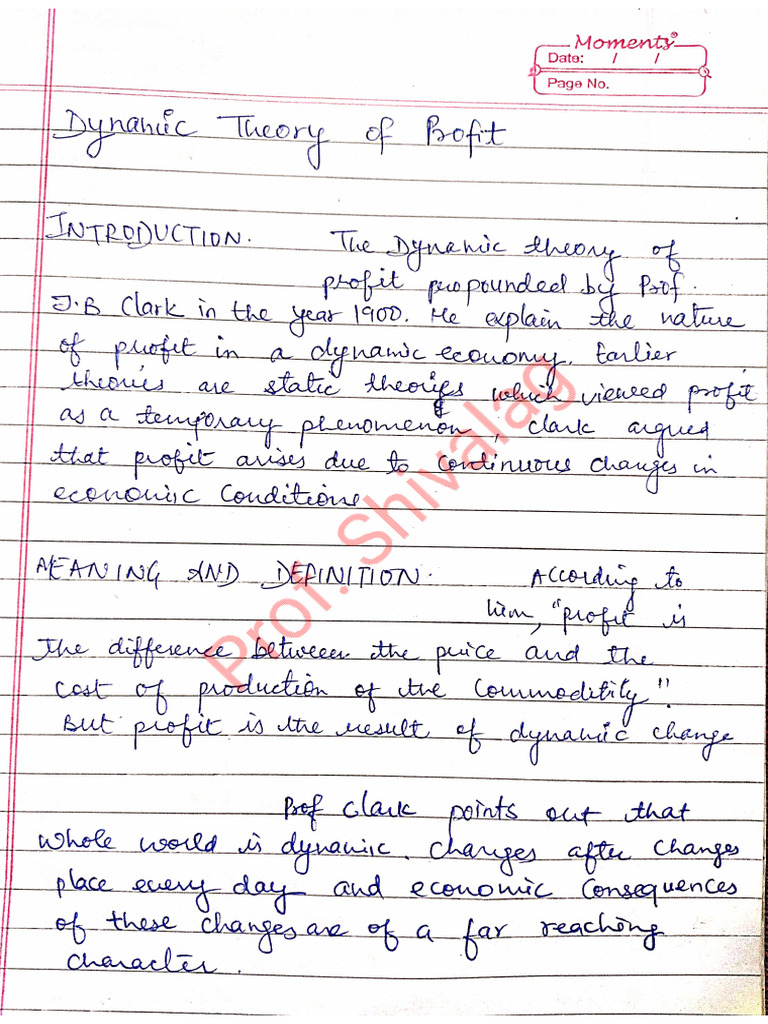 Moments®
Date: / /
Page No.
Dynamic Theory of Profit
INTRODUCTION. The Dynamic theory of
profit propounded by Prof.
J.B Clark in the year 1900. He explain the nature
of profit in a dynamic economy. Earlier
theories are static theories which viewed profit
as a temporary phenomenon, clark argued
that profit arises due to continuous changes in
economic Conditions
MEANING AND DEFINITION. According to
him, "profit is
the difference between the price and the
cost of production of the Commoditity".
But profit is the result of dynamic change
Prof Clark points out that
whole world is dynamic. Changes after changes
place every day and economic Consequences
of these changes are of a far reaching
character.
Prof. Shivalag